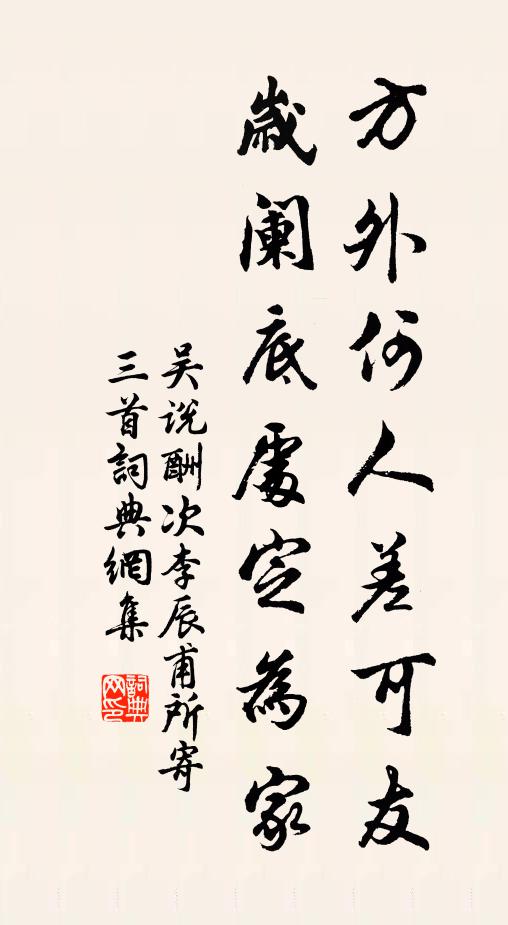 方外何人差可友
歲闌底處定為家
吴说酬次李辰甫所寄
三首詞典網集
詞典网印